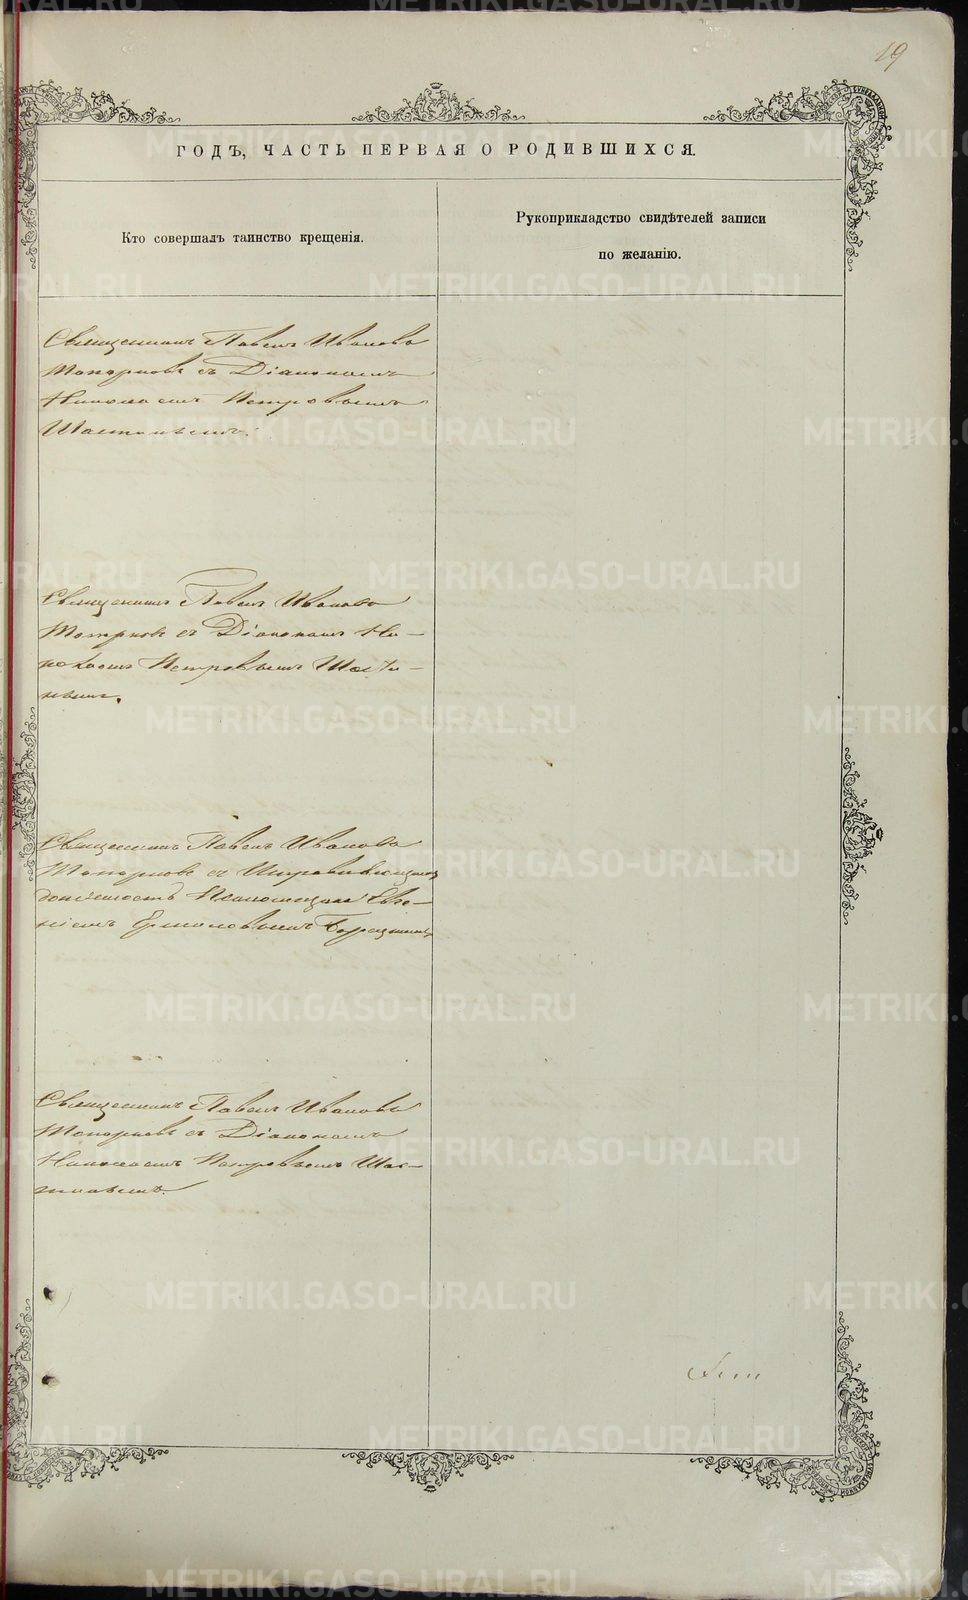 19
ГОДЪ, ЧАСТЬ ПЕРВАЯ О РОДИВШИХСЯ.
Кто совершалъ таинство крещенія.
Рукоприкладство свидѣтелей записи
по желанію.
Священникъ Павелъ Ивановъ
Топорковъ съ Діакономъ
Николаемъ Петровымъ
Священникъ Павелъ Ивановъ
Топорковъ съ Діакономъ Ни-
колаемъ Петровымъ
Священникъ Павелъ Ивановъ
Топорковъ съ Исправляющимъ
должность Псаломщика Евге-
ніемъ Ермоловымъ
Священникъ Павелъ Ивановъ
Топорковъ съ Діакономъ
Николаемъ Петровымъ
METRIKI.GASO-URAL.RU